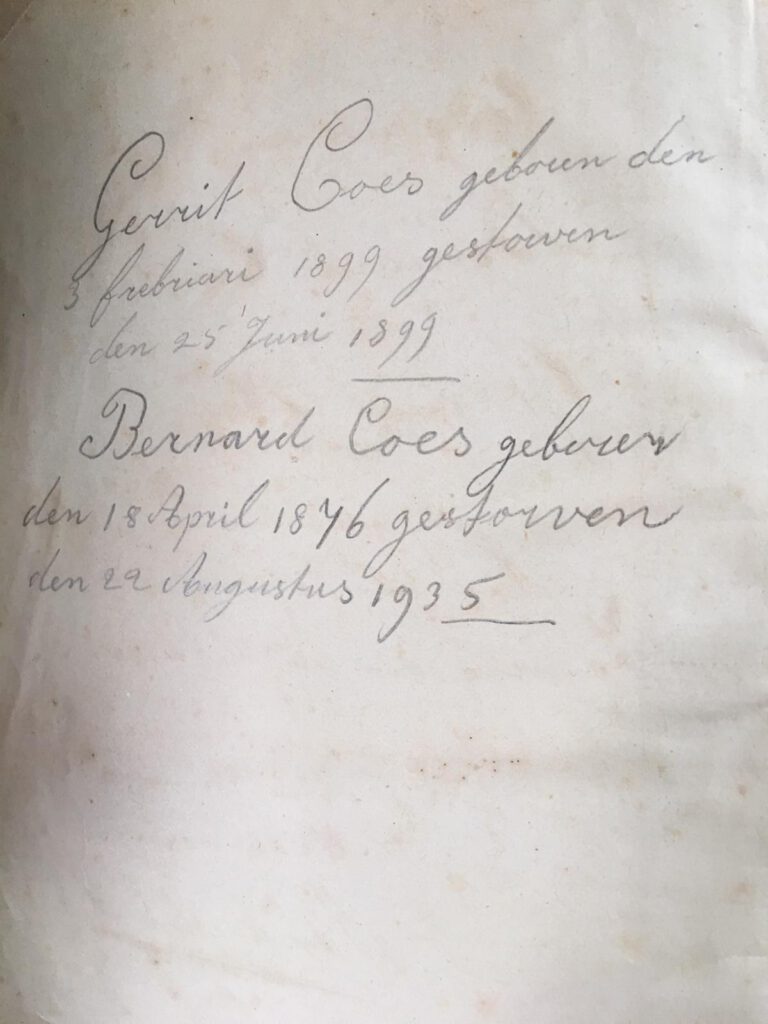 Gerrit Coes geboren den
3 frebriari 1899 gestorven
den 25 Juni 1899
Bernard Coes geboren
den 18 April 1876 gestorven
den 22 Augustus 1935